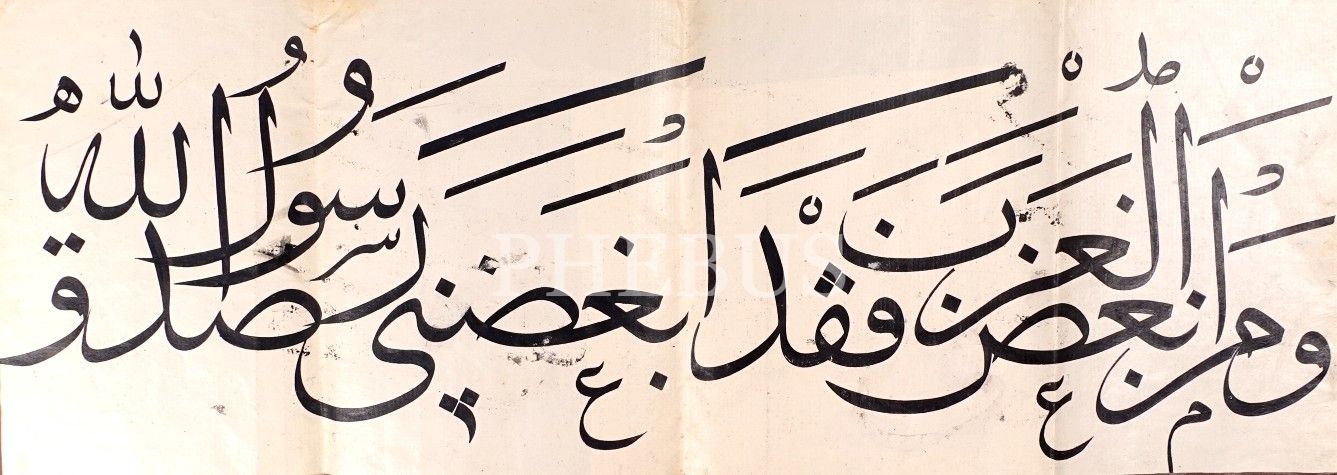 ومن ابغض العرب فقد ابغضني صدق رسول الله
PHEBUS